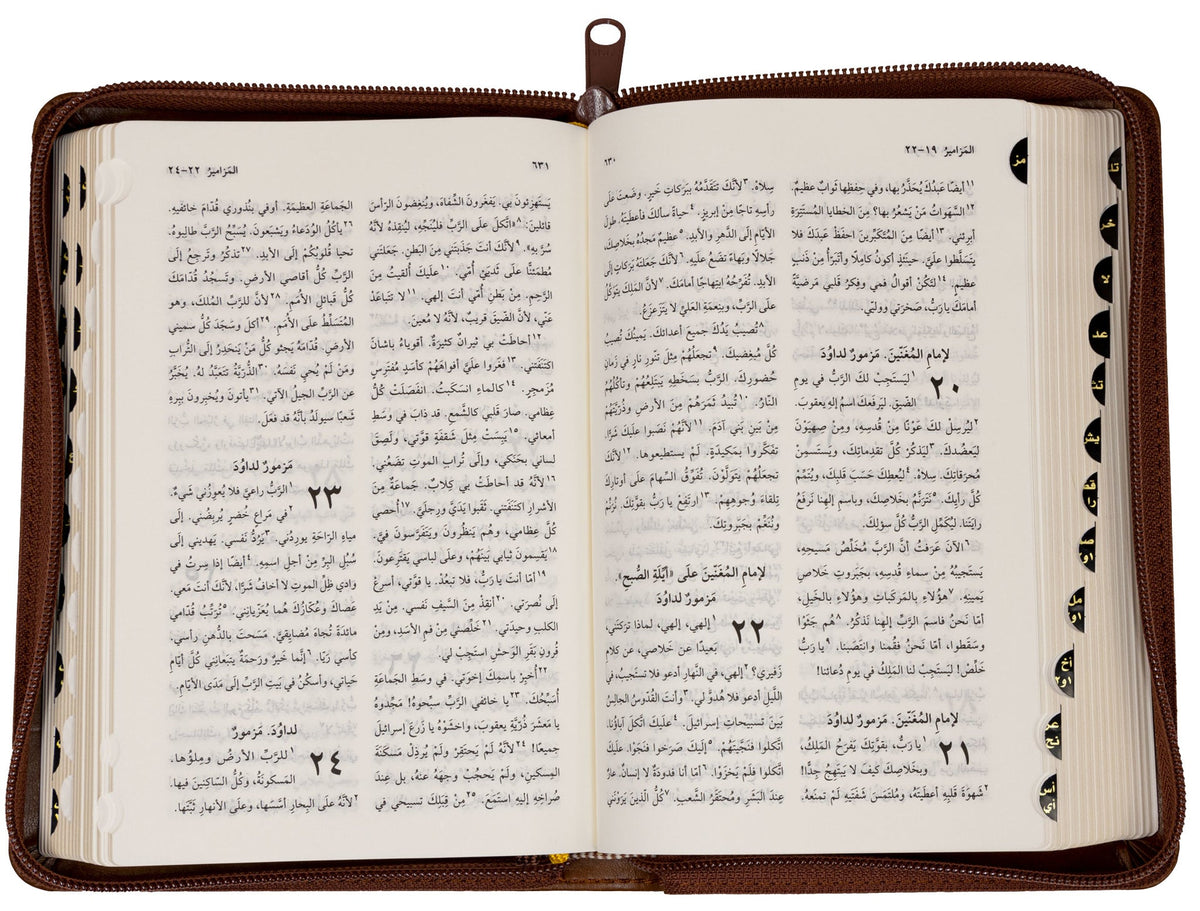 المَزاميرُ ١٩-٢٢
٦٣٠
١١ أيضًا عَبدُكَ يُحَذَّرُ بها، وفي حِفظِها ثَوابٌ عظيمٌ.
١٢ السَّهَواتُ مَنْ يَشعُرُ بها؟ مِنَ الخطايا المُستَتِرَةِ
أبرِئني. ١٣ أيضًا مِنَ المُتَكَبِّرينَ احفَظْ عَبدَكَ فلا
يتَسَلَّطوا علَيَّ. حينَئذٍ أكونُ كامِلًا وأتَبَرّأُ مِنْ ذَنبٍ
عظيمٍ. ١٤ لتَكُنْ أقوالُ فمي وفِكرُ قَلبي مَرضيَّةً
أمامَكَ يا رَبُّ، صَخرَتي ووَليّي.
لإمامِ المُغَنّينَ. مَزمورٌ لداوُدَ
٢٠
١ ليَستَجِبْ لكَ الرَّبُّ في يومِ
الضّيقِ. ليَرفَعكَ اسمُ إلهِ يعقوبَ.
٢ ليُرسِلْ لكَ عَوْنًا مِنْ قُدسِهِ، ومِنْ صِهيَوْنَ
ليَعضُدكَ. ٣ ليَذكُرْ كُلَّ تقدِماتِكَ، ويَستَسمِنْ
مُحرَقاتِكَ. سِلاهْ. ٤ ليُعطِكَ حَسَبَ قَلبِكَ، ويُتَمِّمْ
كُلَّ رأيِكَ. ٥ نَتَرَنَّمُ بخَلاصِكَ، وباسمِ إلهِنا نَرفَعُ
رايَتَنا. ليُكَمِّلِ الرَّبُّ كُلَّ سؤلِكَ.
٦ الآنَ عَرَفتُ أنَّ الرَّبَّ مُخَلِّصُ مَسيحِهِ،
يَستَجيبُهُ مِنْ سماءِ قُدسِهِ، بجَبَروتِ خَلاصِ
يَمينِهِ. ٧ هؤُلاءِ بالمَركَباتِ وهؤُلاءِ بالخَيلِ،
أمّا نَحنُ فاسمَ الرَّبِّ إلهِنا نَذكُرُ. ٨ هُم جَثَوْا
وسَقَطوا، أمّا نَحنُ فقُمنا وانتَصَبنا. ٩ يا رَبُّ
خَلِّصْ! ليَستَجِبْ لنا المَلِكُ في يومِ دُعائنا!
لإمامِ المُغَنّينَ. مَزمورٌ لداوُدَ
٢١
١ يا رَبُّ، بقوَّتِكَ يَفرَحُ المَلِكُ،
وبخَلاصِكَ كيفَ لا يَبتَهِجُ جِدًّا!
٢ شَهوَةَ قَلبِهِ أعطَيتَهُ، ومُلتَمَسَ شَفَتَيهِ لَمْ تمنَعهُ.
سِلاهْ. ٣ لأنَّكَ تتَقَدَّمُهُ ببَرَكاتِ خَيرٍ. وضَعتَ علَى
رأسِهِ تاجًا مِنْ إبريزٍ. ٤ حياةً سألكَ فأعطَيتَهُ. طولَ
الأيّامِ إلَى الدَّهرِ والأبدِ. ٥ عظيمٌ مَجدُهُ بخَلاصِكَ،
جَلالًا وبَهاءً تضَعُ علَيهِ. ٦ لأنَّكَ جَعَلتَهُ بَرَكاتٍ إلَى
الأبدِ. تُفَرِّحُهُ ابتِهاجًا أمامَكَ. ٧ لأنَّ المَلِكَ يتوَكَّلُ
علَى الرَّبِّ، وبنِعمَةِ العَليِّ لا يتَزَعزَعُ.
٨ تُصيبُ يَدُكَ جميعَ أعدائكَ. يَمينُكَ تُصيبُ
كُلَّ مُبغِضيكَ. ٩ تجعَلُهُمْ مِثلَ تنّورِ نارٍ في زَمانِ
حُضورِكَ. الرَّبُّ بسَخَطِهِ يَبتَلِعُهُمْ وتأكُلُهُمُ
النّارُ. ١٠ تُبيدُ ثَمَرَهُمْ مِنَ الأرضِ وذُرّيَّتَهُمْ
مِنْ بَينِ بَني آدَمَ. ١١ لأنَّهُمْ نَصَبوا علَيكَ شَرًّا.
تفَكَّروا بمَكيدَةٍ. لَمْ يستطيعوها. ١٢ لأنَّكَ
تجعَلُهُمْ يتَوَلَّوْنَ. تُفَوِّقُ السِّهامَ علَى أوتارِكَ
تِلقاءَ وُجوهِهِمْ. ١٣ ارتَفِعْ يا رَبُّ بقوَّتِكَ. نُرَنِّمْ
ونُنَغِّمْ بجَبَروتِكَ.
لإمامِ المُغَنّينَ علَى «أيِّلَةِ الصُّبحِ».
مَزمورٌ لداوُدَ
٢٢
١ إلهي، إلهي، لماذا ترَكتَني
بَعيدًا عن خَلاصي، عن كلامِ
زَفيري؟ ٢ إلهي، في النَّهارِ أدعو فلا تستَجيبُ، في
اللَّيلِ أدعو فلا هُدوَّ لي. ٣ وأنتَ القُدّوسُ الجالِسُ
بَينَ تسبيحاتِ إسرائيلَ. ٤ علَيكَ اتَّكلَ آباؤُنا.
اتَّكلوا فنَجَّيتَهُمْ. ٥ إلَيكَ صَرَخوا فنَجَوْا. علَيكَ
اتَّكلوا فلَمْ يَخزَوْا. ٦ أمّا أنا فدودَةٌ لا إنسانٌ. عارٌ
عِندَ البَشَرِ ومُحتَقَرُ الشَّعبِ. ٧ كُلُّ الّذينَ يَرَوْنَني
مز
تك
خر
لا
عد
تث
يش
قض
را
مل
أخ
عز
نح
أس
أي
٦٣١
المَزاميرُ ٢٢-٢٤
يَستَهزِئونَ بي. يَفغَرونَ الشِّفاهَ، ويُنغِضونَ الرّأسَ
قائلينَ: ٨ «اتَّكلَ علَى الرَّبِّ فليُنَجِّهِ، ليُنقِذهُ لأنَّهُ
سُرَّ بهِ». ٩ لأنَّكَ أنتَ جَذَبتَني مِنَ البَطنِ. جَعَلتَني
مُطمَئنًّا علَى ثَديَيْ أُمّي. ١٠ علَيكَ أُلقيتُ مِنَ
الرَّحِمِ. مِنْ بَطنِ أُمّي أنتَ إلهي. ١١ لا تتَباعَدْ
عَنّي، لأنَّ الضّيقَ قريبٌ، لأنَّهُ لا مُعينَ.
١٢ أحاطَتْ بي ثيرانٌ كثيرَةٌ. أقوياءُ باشانَ
اكتَنَفَتني. ١٣ فغَروا علَيَّ أفواهَهُمْ كأسَدٍ مُفتَرِسٍ
مُزَمجِرٍ. ١٤ كالماءِ انسَكَبتُ. انفَصَلَتْ كُلُّ
عِظامي. صارَ قَلبي كالشَّمعِ. قد ذابَ في وسَطِ
أمعائي. ١٥ يَبِسَتْ مِثلَ شَقفَةٍ قوَّتي، ولَصِقَ
لساني بحَنَكي، وإلَى تُرابِ الموتِ تضَعُني.
١٦ لأنَّهُ قد أحاطَتْ بي كِلابٌ. جَماعَةٌ مِنَ
الأشرارِ اكتَنَفَتني. ثَقَبوا يَدَيَّ ورِجلَيَّ. ١٧ أُحصي
كُلَّ عِظامي، وهُم يَنظُرونَ ويَتَفَرَّسونَ فيَّ.
١٨ يَقسِمونَ ثيابي بَينَهُمْ، وعلَى لباسي يَقتَرِعونَ.
١٩ أمّا أنتَ يا رَبُّ، فلا تبعُدْ. يا قوَّتي، أسرِعْ
إلَى نُصرَتي. ٢٠ أنقِذْ مِنَ السَّيفِ نَفسي. مِنْ يَدِ
الكلبِ وحيدَتي. ٢١ خَلِّصني مِنْ فمِ الأسَدِ، ومِنْ
قُرونِ بَقَرِ الوَحشِ استَجِبْ لي.
٢٢ أُخبِرْ باسمِكَ إخوَتي. في وسَطِ الجَماعَةِ
أُسَبِّحُكَ. ٢٣ يا خائفي الرَّبِّ سبِّحوهُ! مَجِّدوهُ
يا مَعشَرَ ذُرّيَّةِ يعقوبَ، واخشَوْهُ يا زَرعَ إسرائيلَ
جميعًا! ٢٤ لأنَّهُ لَمْ يَحتَقِرْ ولَمْ يُرذِلْ مَسكَنَةَ
المِسكينِ، ولَمْ يَحجُبْ وجهَهُ عنهُ، بل عِندَ
صُراخِهِ إليهِ استَمَعَ. ٢٥ مِنْ قِبَلِكَ تسبيحي في
الجَماعَةِ العظيمَةِ. أوفي بنُذوري قُدّامَ خائفيهِ.
٢٦ يأكُلُ الوُدَعاءُ ويَشبَعونَ. يُسَبِّحُ الرَّبَّ طالِبوهُ.
تحيا قُلوبُكُمْ إلَى الأبدِ. ٢٧ تذكُرُ وتَرجِعُ إلَى
الرَّبِّ كُلُّ أقاصي الأرضِ. وتَسجُدُ قُدّامَكَ
كُلُّ قَبائلِ الأُمَمِ. ٢٨ لأنَّ للرَّبِّ المُلكَ، وهو
المُتَسَلِّطُ علَى الأُمَمِ. ٢٩ أكلَ وسَجَدَ كُلُّ سميني
الأرضِ. قُدّامَهُ يَجثو كُلُّ مَنْ يَنحَدِرُ إلَى التُّرابِ
ومَنْ لَمْ يُحيِ نَفسَهُ. ٣٠ الذُّرّيَّةُ تتَعَبَّدُ لهُ. يُخَبَّرُ
عن الرَّبِّ الجيلُ الآتي. ٣١ يأتونَ ويُخبِرونَ ببِرِّهِ
شَعبًا سيولَدُ بأنَّهُ قد فعَلَ.
مَزمورٌ لداوُدَ
٢٣
١ الرَّبُّ راعيَّ فلا يُعوِزُني شَيءٌ.
٢ في مَراعٍ خُضرٍ يُربِضُني. إلَى
مياهِ الرّاحَةِ يورِدُني. ٣ يَرُدُّ نَفسي. يَهديني إلَى
سُبُلِ البِرِّ مِنْ أجلِ اسمِهِ. ٤ أيضًا إذا سِرتُ في
وادي ظِلِّ الموتِ لا أخافُ شَرًّا، لأنَّكَ أنتَ مَعي.
عَصاكَ وعُكّازُكَ هُما يُعَزّيانِني. ٥ تُرَتِّبُ قُدّامي
مائدَةً تُجاهَ مُضايِقيَّ. مَسَحتَ بالدُّهنِ رأسي.
كأسي رَيّا. ٦ إنَّما خَيرٌ ورَحمَةٌ يَتبَعانِني كُلَّ أيّامِ
حَياتي، وأسكُنُ في بَيتِ الرَّبِّ إلَى مَدَى الأيّامِ.
لداوُدَ. مَزمورٌ
٢٤
١ للرَّبِّ الأرضُ ومِلؤُها.
المَسكونَةُ، وكُلُّ السّاكِنينَ فيها.
٢ لأنَّهُ علَى البِحارِ أسَّسَها، وعلَى الأنهارِ ثَبَّتَها.